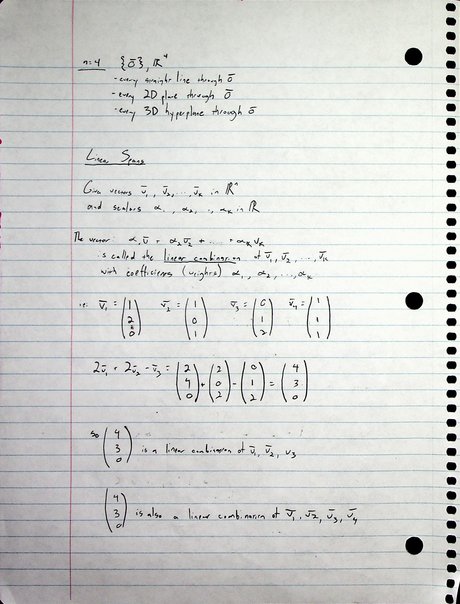 n=4 {0̄}, ℝ⁴
- every straight line through 0̄
- every 2D plane through 0̄
- every 3D hyperplane through 0̄
Linear Spans
Given vectors v̄₁, v̄₂, ..., v̄ₖ in ℝⁿ
and scalars α₁, α₂, .., αₖ in ℝ
The vector: α₁v̄ + α₂v̄₂ + ... + αₖvₖ
is called the linear combination of v̄₁, v̄₂, ..., v̄ₖ
with coefficients (weights) α₁, α₂, ..., αₖ
ie. v̄₁ = (1 2 0) v̄₂ = (1 0 1) v̄₃ = (0 1 2) v̄₄ = (1 1 1)
2v̄₁ + 2v̄₂ - v̄₃ = (2 4 0) + (2 0 2) - (0 1 2) = (4 3 0)
so (4 3 0) is a linear combination of v̄₁, v̄₂, v₃
(4 3 0) is also a linear combination of v̄₁, v̄₂, v̄₃, v̄₄